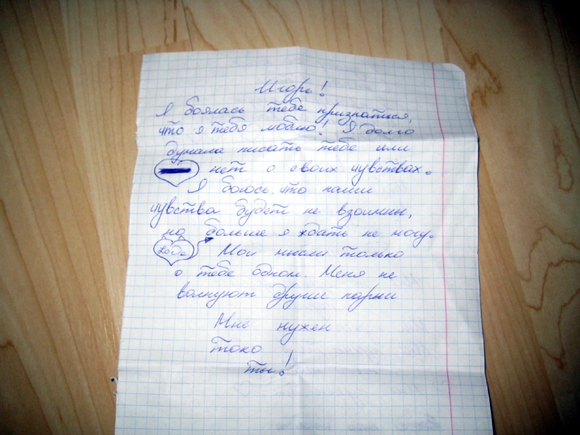 Игорь!
Я боялась тебе признатися,
что я тебя люблю! Я долго
думала писать тебе или
нет о своих чувствах.
Я боюсь, что наши
чувства будет не взаимны,
но больше я ждать не могу.
Мои мысли только
о тебе одном. Меня не
волнуют другие парни
Мне нужен
токо
ты!